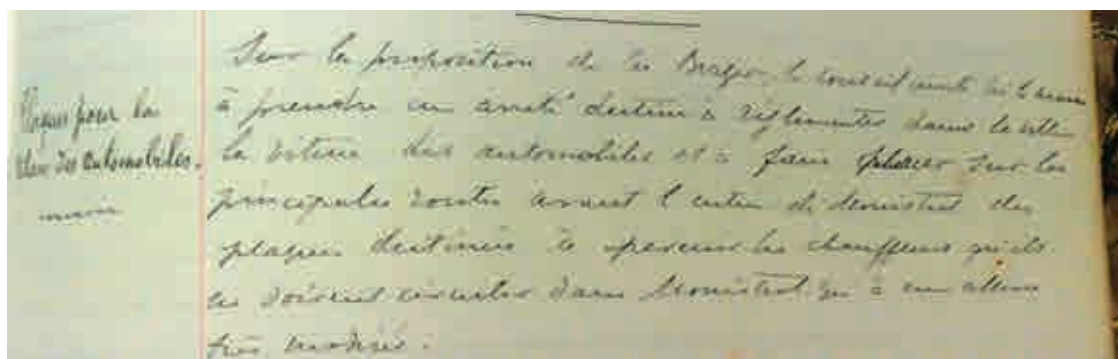 Plaques pour la
vitesse des automobiles.
mairie
Sur la proposition de Mr Brager le conseil invite Mr le maire
à prendre un arrêté destiné à réglementer dans la ville
la vitesse des automobiles et à faire placer sur les
principales routes avant l'entrée de Monistrol des
plaques destinées à prévenir les chauffeurs qu'ils
ne doivent circuler dans Monistrol qu'à une allure
très modérée.